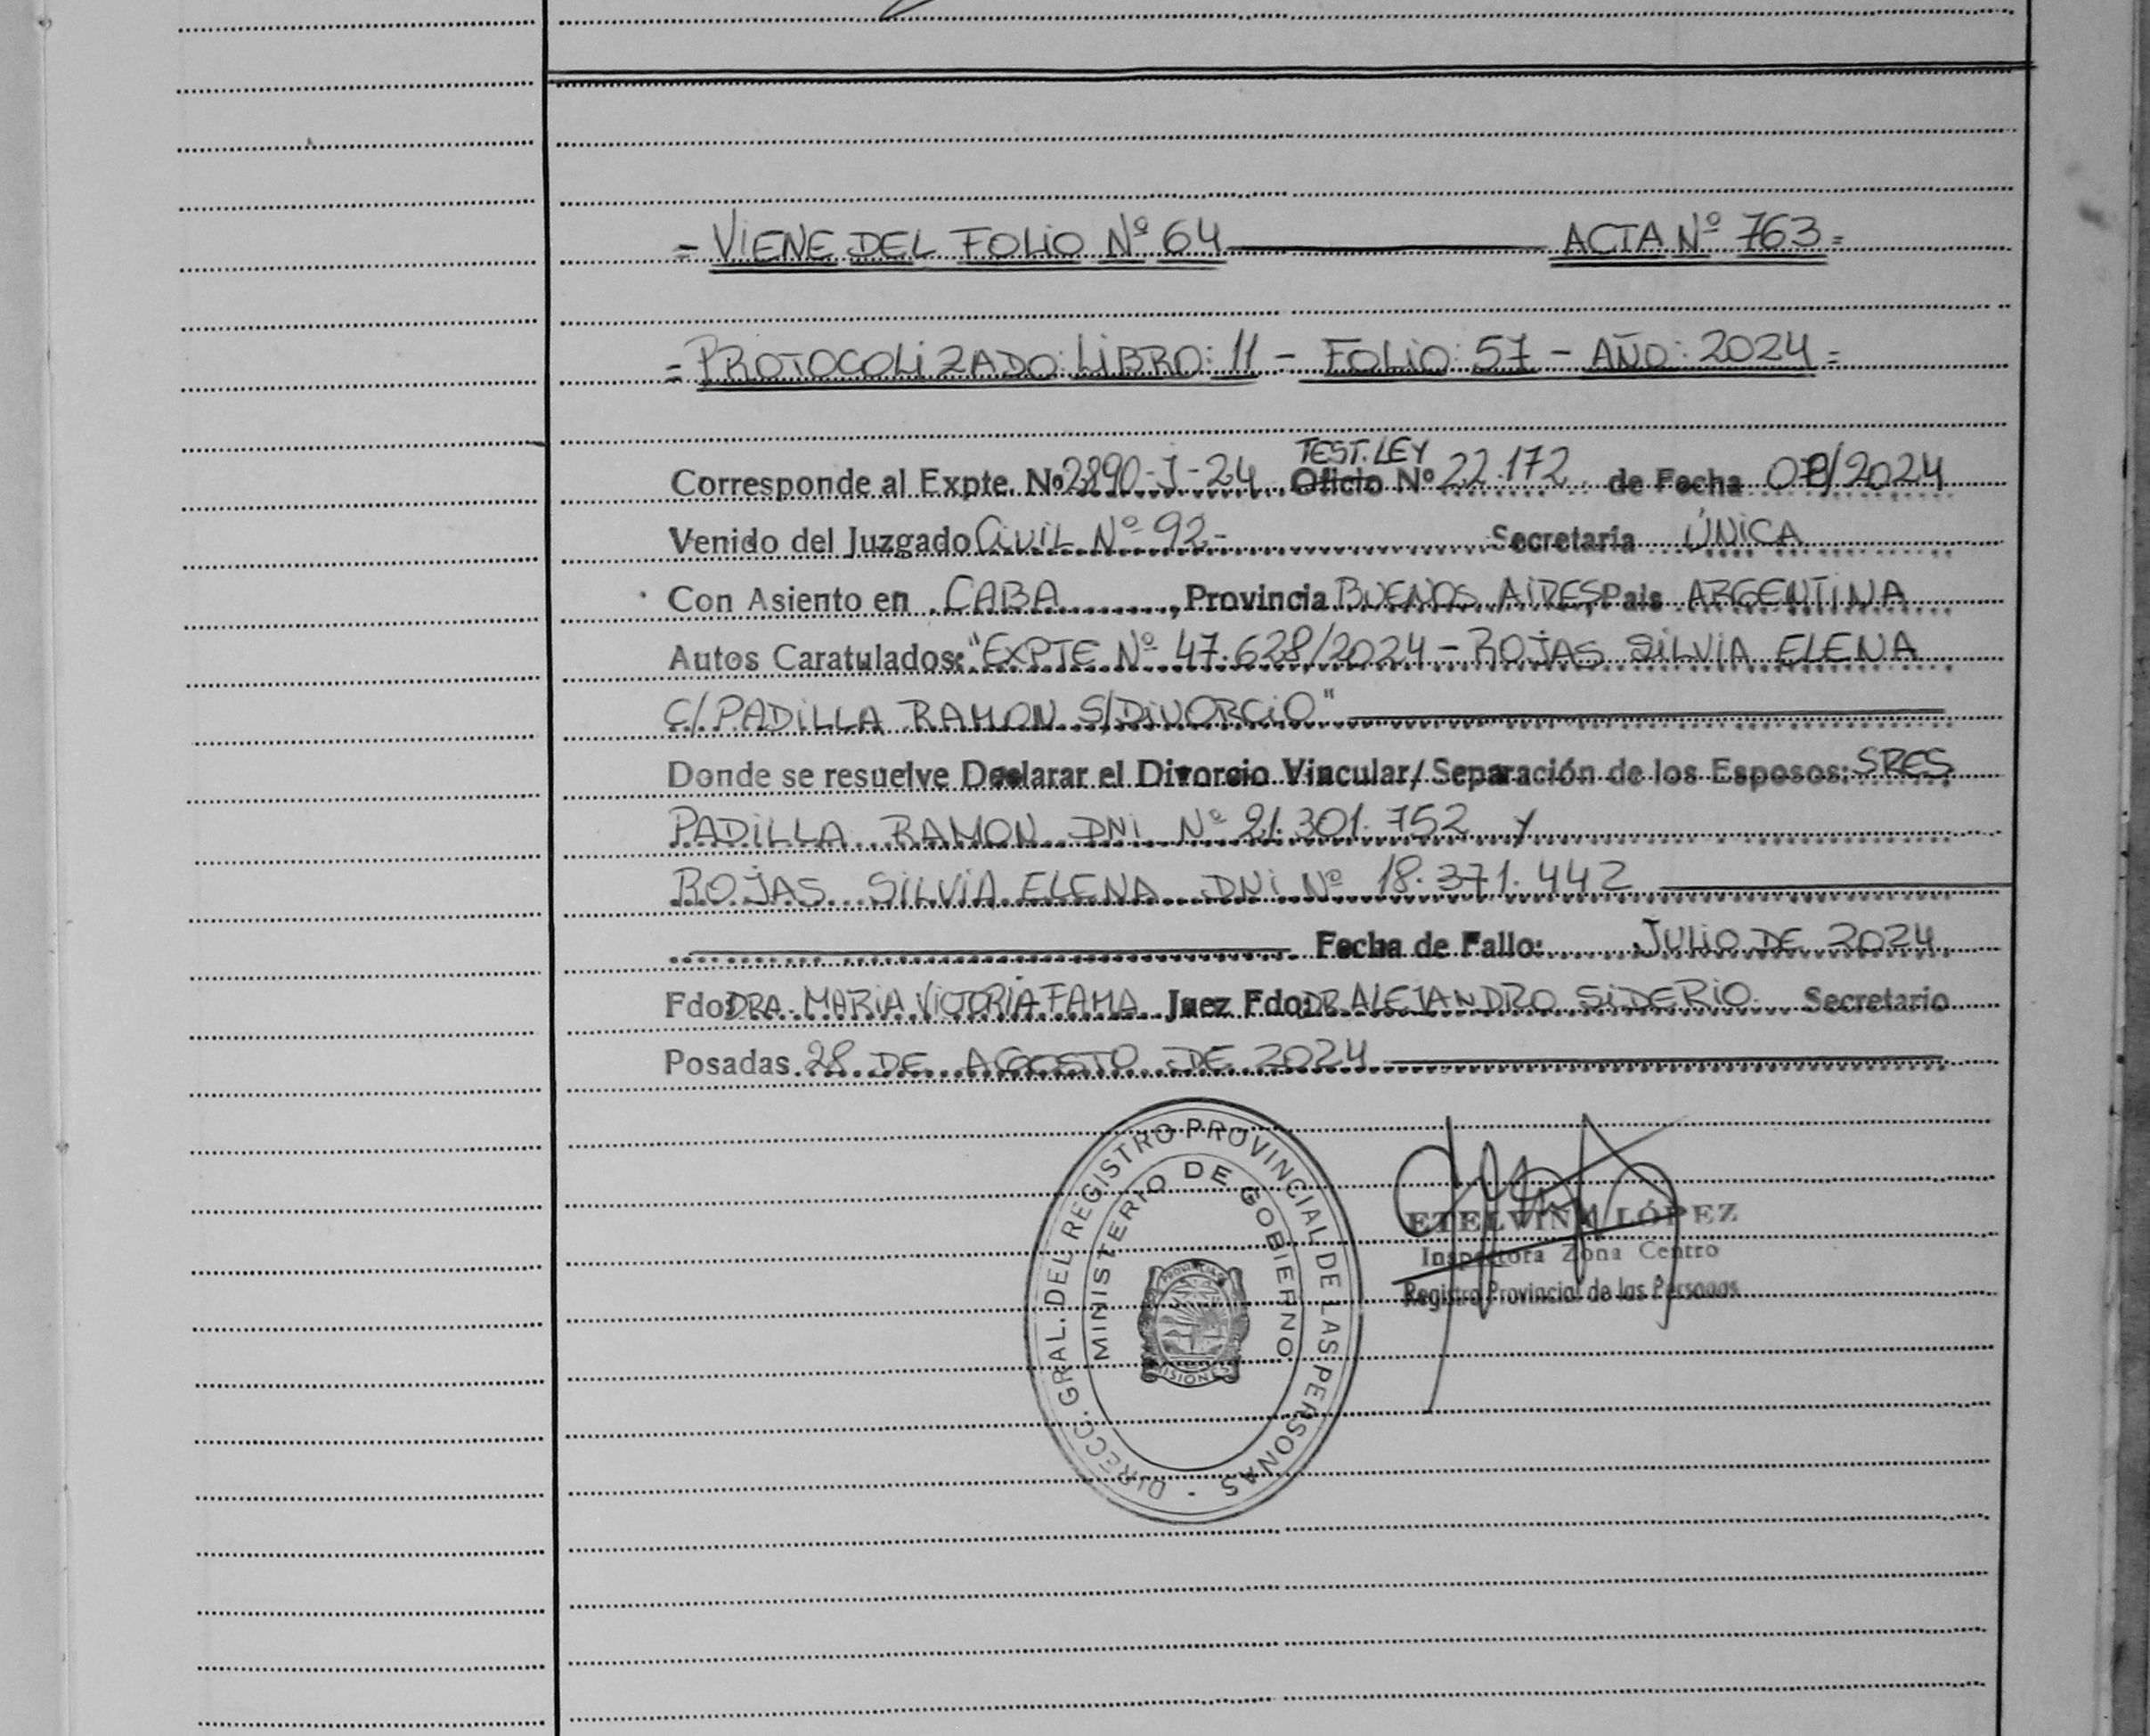 = VIENE DEL FOLIO Nº 64 ACTA Nº 763 =
= PROTOCOLIZADO: LIBRO: 11 - FOLIO: 57 - AÑO: 2024 =
TEST. LEY
Corresponde al Expte. Nº 2890-J-24 Oficio Nº 22.172 de Fecha /2024
Venido del Juzgado CIVIL Nº 92- Secretaría ÚNICA
Con Asiento en CABA, Provincia BUENOS AIRES País ARGENTINA
Autos Caratulados: "EXPTE Nº 47.628/2024 - ROJAS SILVIA ELENA
C/ PADILLA RAMON S/DIVORCIO"
Donde se resuelve Declarar el Divorcio Vincular/ Separación de los Esposos: SRES
PADILLA RAMON DNI Nº 21.301.752 Y
ROJAS SILVIA ELENA DNI Nº 18.371.442
Fecha de Fallo: JULIO DE 2024
Fdo: DRA. MARIA VICTORIA FAMA Juez Fdo: DR ALEJANDRO SIDERIO Secretario
Posadas 28 DE AGOSTO DE 2024
DIRECC. GRAL. DEL REGISTRO PROVINCIAL DE LAS PERSONAS -
MINISTERIO DE GOBIERNO
PROVINCIA
MISIONES
ETELVINA LÓPEZ
Inspectora Zona Centro
Registro Provincial de las Personas